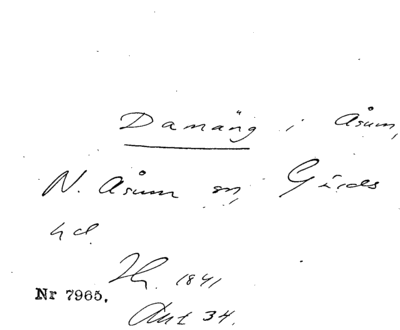 Damäng i Åsum,
N. Åsum sn, Gärds
hd.
Hg. 1841
Nr 7965.
Akt 34.